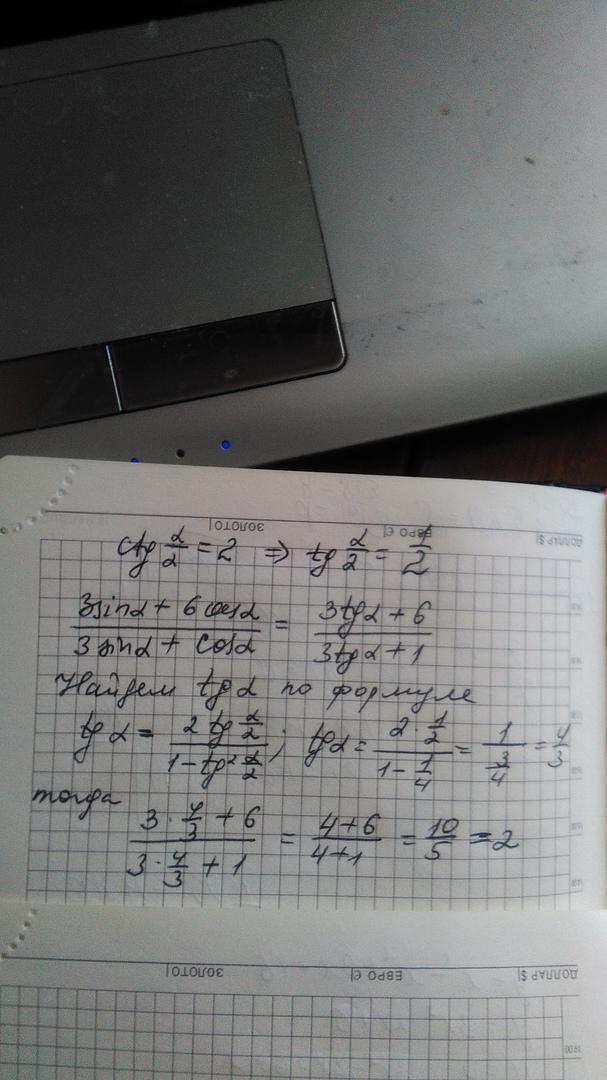 ЗОЛОТО| ЕВРО €| ДОЛЛАР $|
ctg α/2 = 2 ⇒ tg α/2 = 1/2
(3sinα + 6cosα)/(3sinα + cosα) = (3tgα + 6)/(3tgα + 1)
Найдем tgα по формуле
tgα = (2tg α/2)/(1-tg² α/2); tgα = (2·1/2)/(1-1/4) = 1/(3/4) = 4/3
тогда
(3·4/3 + 6)/(3·4/3 + 1) = (4+6)/(4+1) = 10/5 = 2
ЗОЛОТО| ЕВРО €| ДОЛЛАР $|
19.00